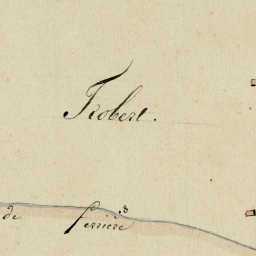 Robert.
de ferriere